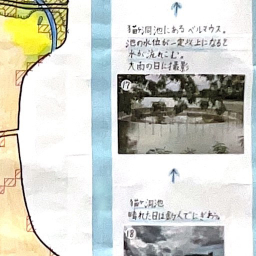 猫ヶ洞池にあるベルマウス。
池の水位が一定以上になると
水が流れこむ。
大雨の日に撮影
17
猫ヶ洞池
晴れた日は釣人でにぎわう。
18